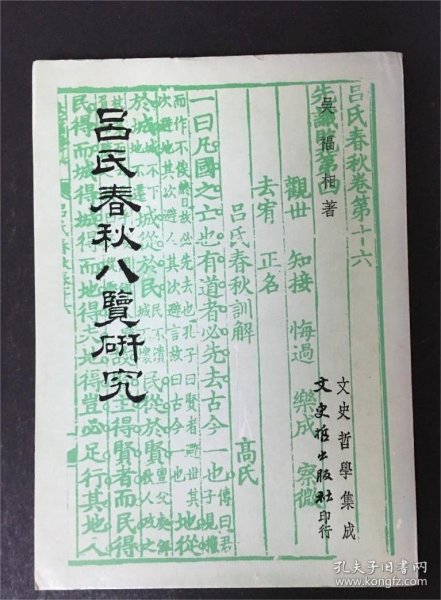 呂氏春秋八覽研究
吳福相著
文史哲學集成
文史哲出版社印行
呂氏春秋卷第十六
先識覽第四
觀世 知接 悔過 樂成 察微
去宥 正名
呂氏春秋訓解 高氏
一曰凡國之亡也有道者必先去古今一也傳曰君子見機
地從
於城 城從於民 民從於賢
主得賢者而民得
民得而城得城得而地得夫地得豈必足行其地人
孔夫子旧书网
www.kongfz.com